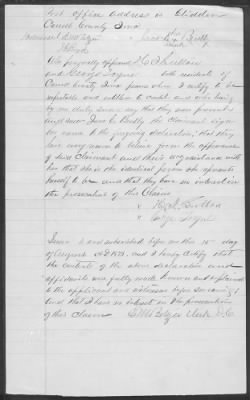 Post Office address is Glidden
Carroll County Iowa
Jane A. Beatty
mark
Also personally appeared H. O.
and George residents of
Carroll County Iowa persons whom I certify to be
reputable and entitled to credit and who being
by me duly sworn say that they were present
and saw Jane A. Beatty the Claimant sign
her name to the foregoing declaration; that they
have every reason to believe from the appearance
of said Claimant and their acquaintance with
her that she is the identical person she represents
herself to be and that they have no interest in
the prosecution of this Claim
Sworn to and subscribed before me this 15th day
of August AD 1878. and I hereby Certify that
the contents of the above declaration and
affidavits were fully made known and explained
to the applicant and witnesses before swearing
and that I have no interest in the prosecution
of this claim Clerk D.C.